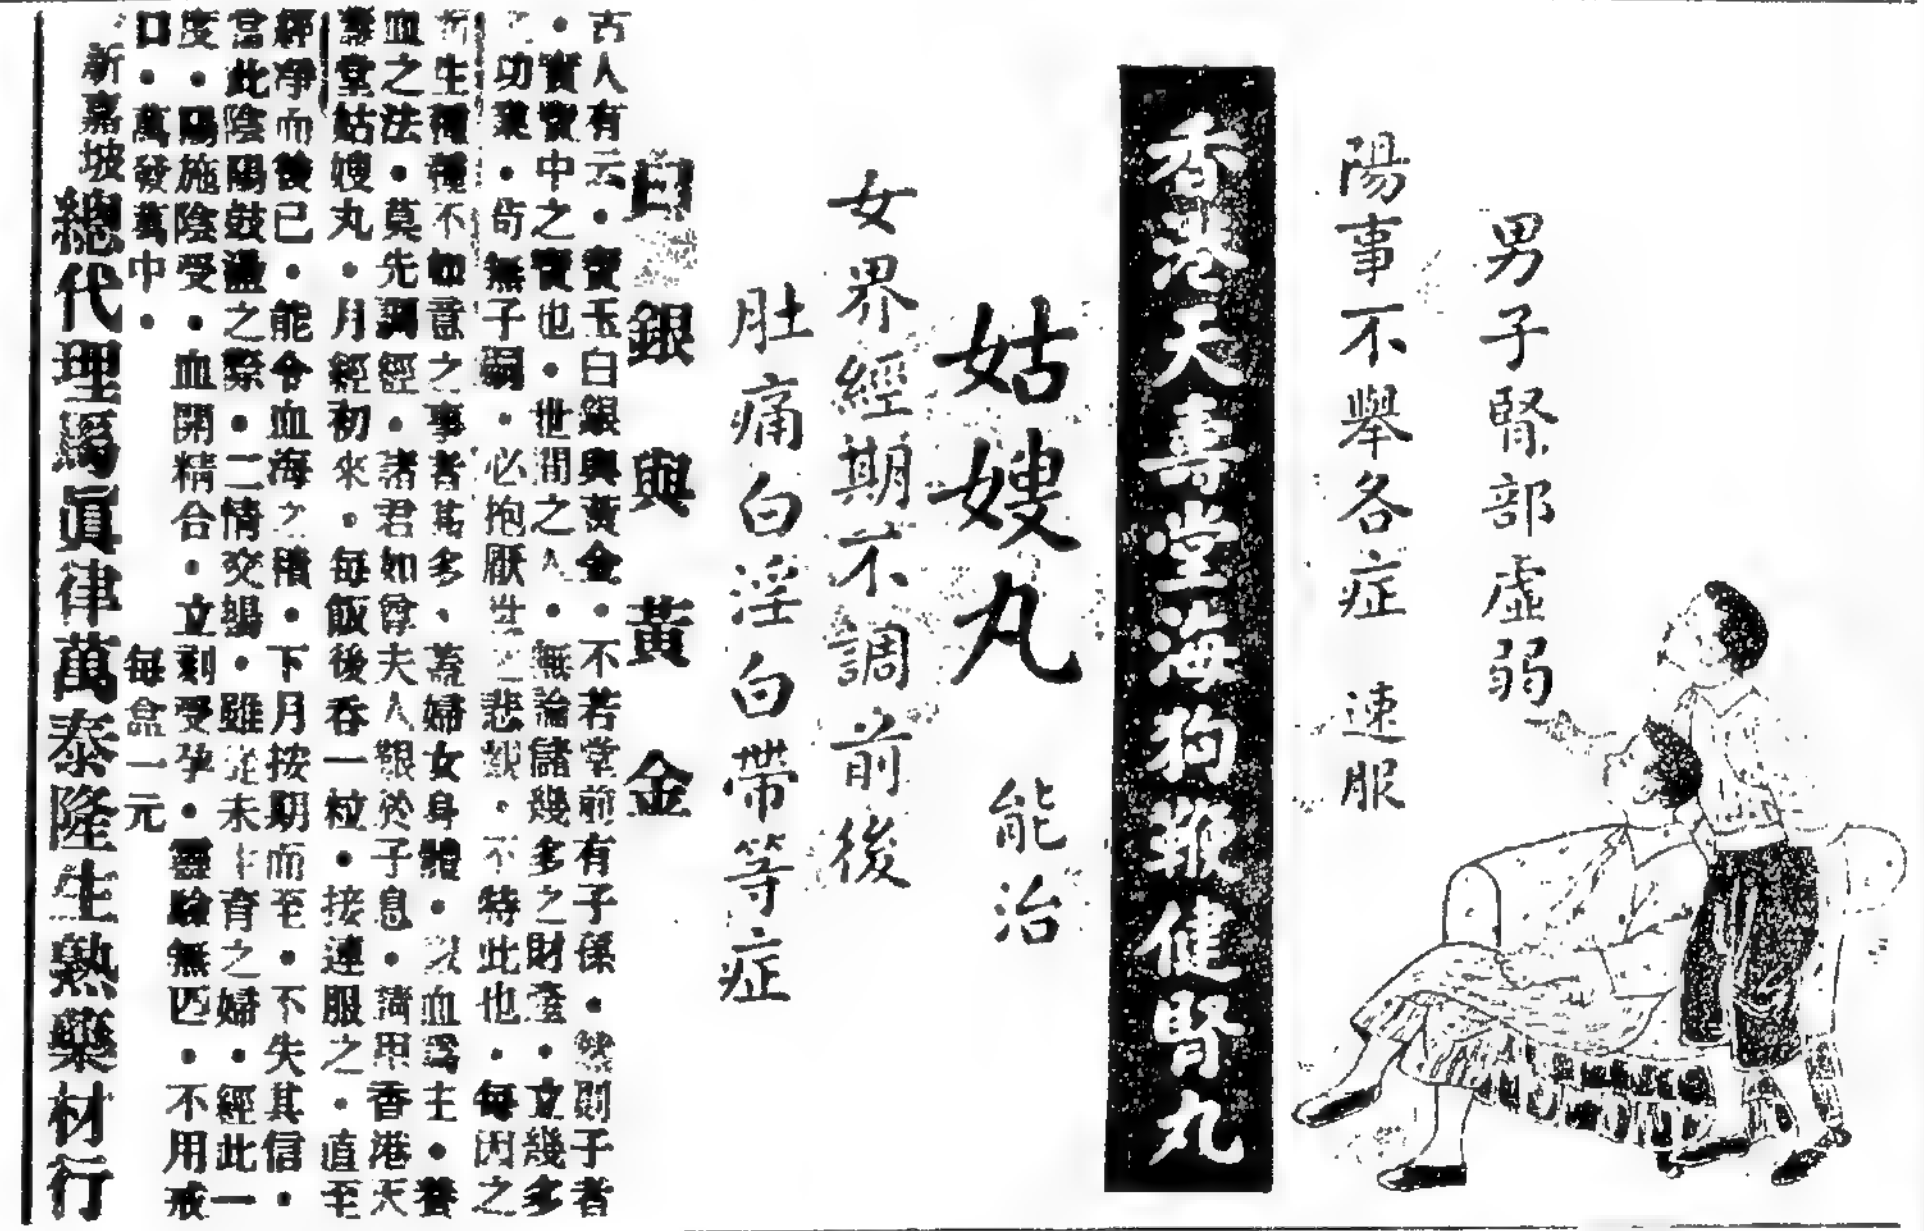 男子腎部虛弱
陽事不舉各症 速服
香港天壽堂海狗鞭健腎丸
姑嫂丸 能治
女界經期不調前後
肚痛白淫白帶等症
白銀與黃金
古人有云•寶玉白銀與黃金•不若堂前有子係•然則子者
•實寶中之寶也•世間之人•無論儲幾多之財產•立幾多
之功業•苟無子嗣•必抱厭世之悲觀•不特此也•每因之
而生種種不如意之事者甚多、蓋婦女身體•以血為主•養
血之法•莫先調經•諸君如尊夫人艱於子息•請用香港天
壽堂姑嫂丸•月經初來•每飯後吞一粒•接連服之•直至
經淨而後已•能令血海之積•下月按期而至•不失其信•
當此陰陽鼓盪之際•二情交暢•雖從未生育之婦•經此一
度•陽施陰受•血開精合•立刻受孕•靈驗無匹•不用戒
口•萬發萬中• 每盒一元
新嘉坡總代理馬真律萬泰隆生熟藥材行